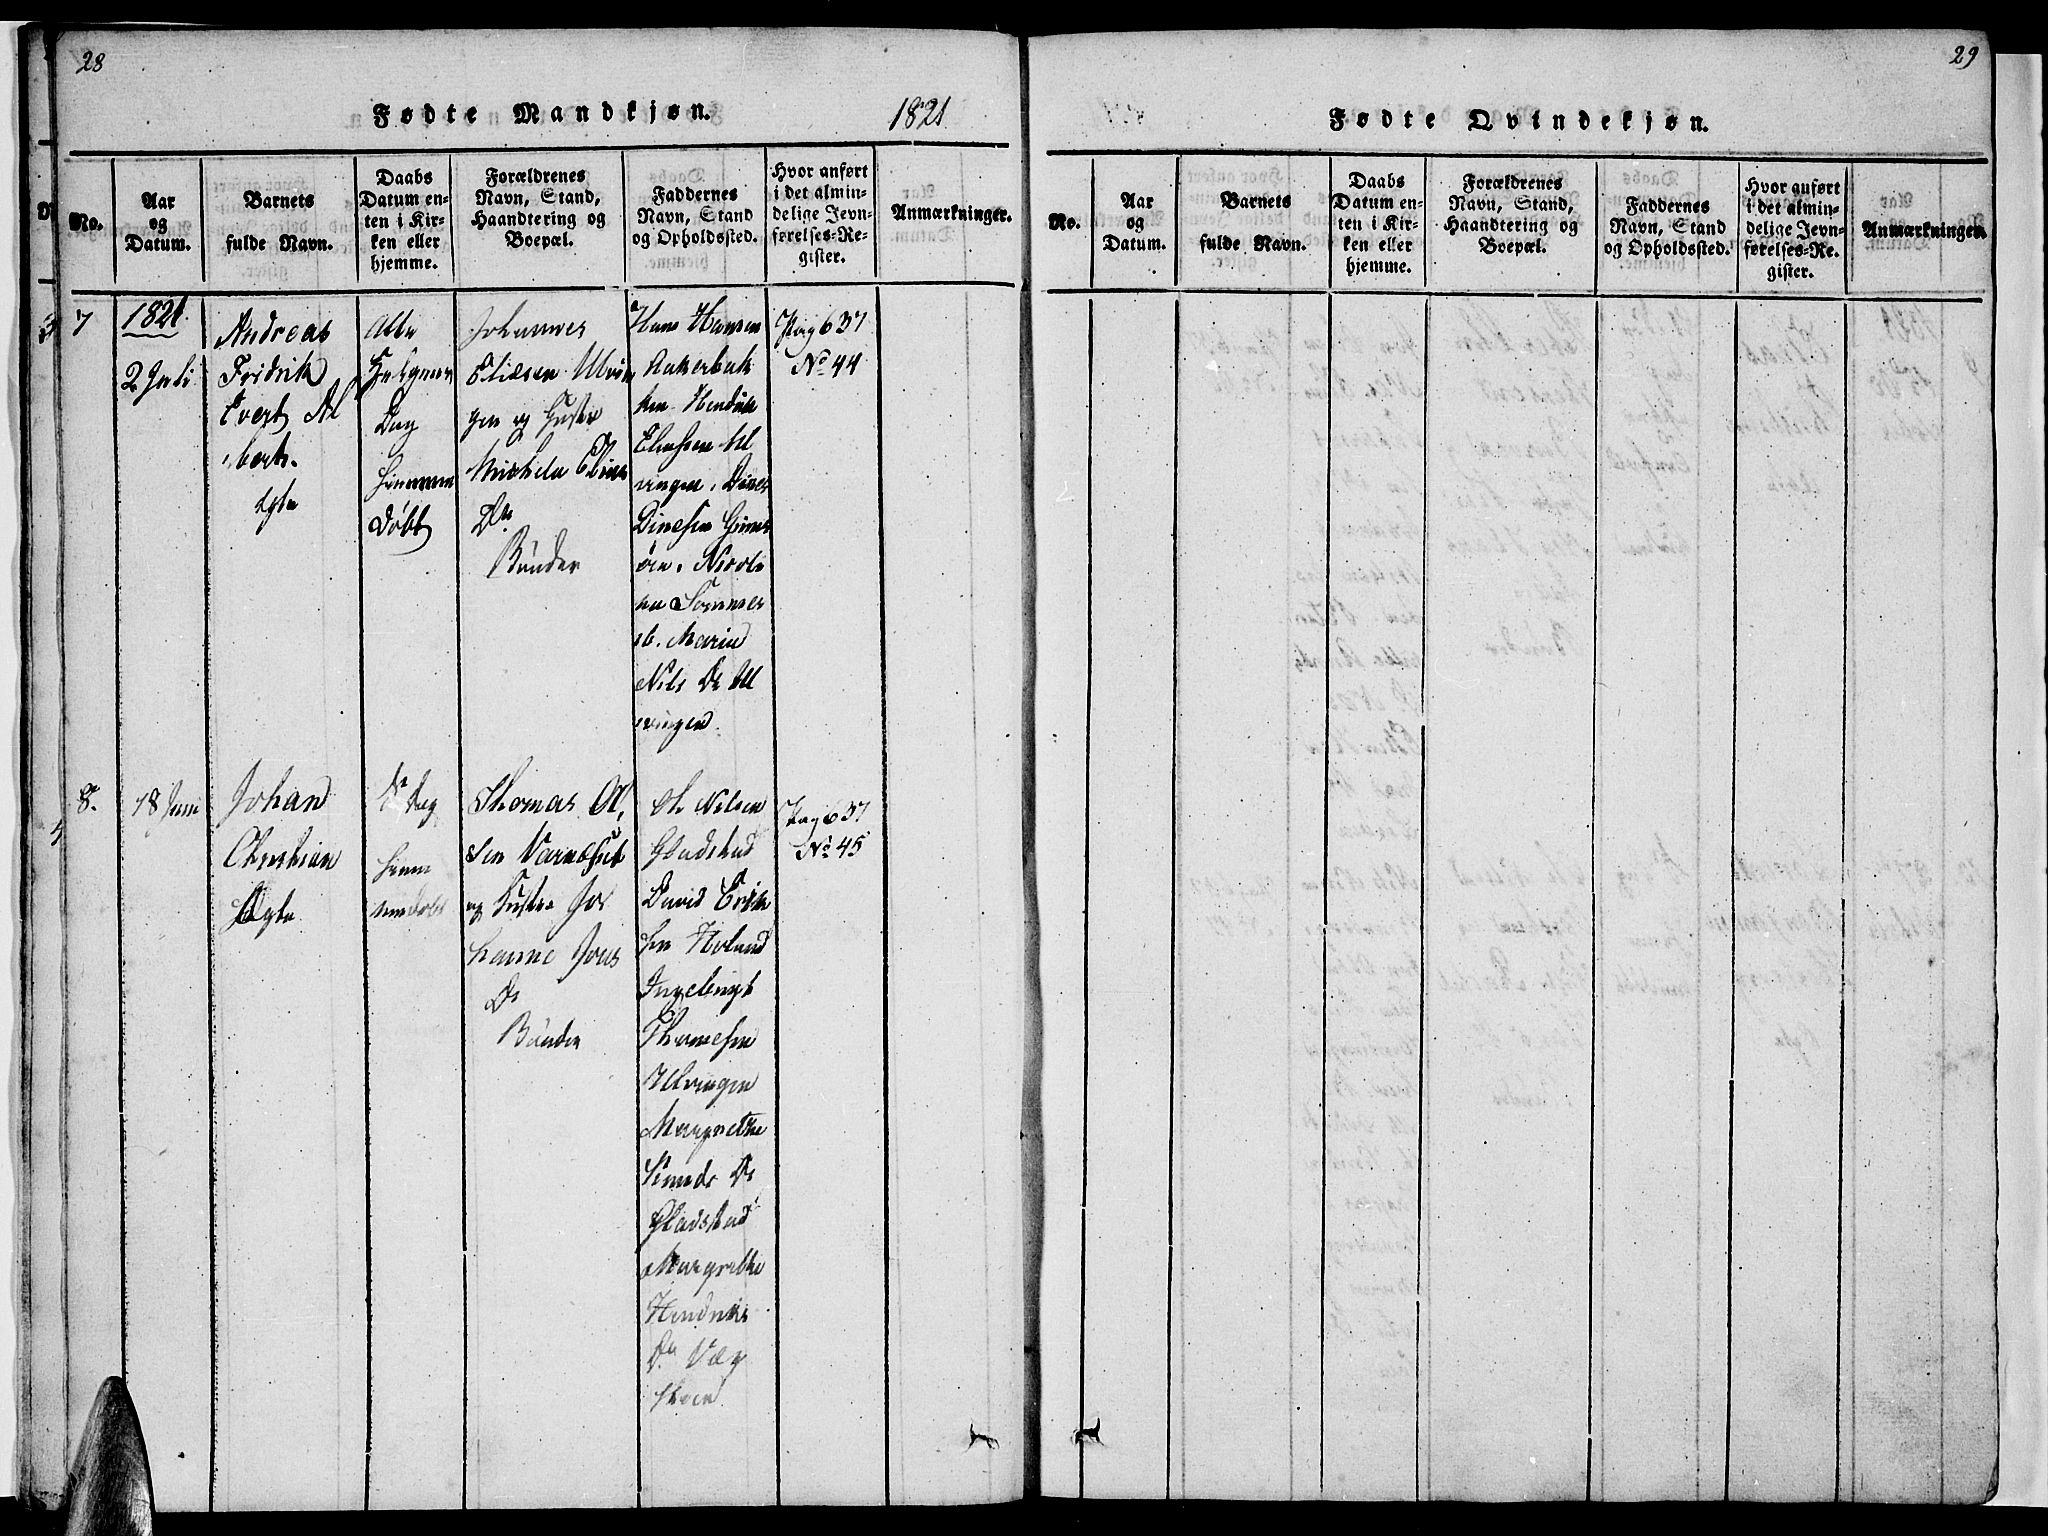 28
Fødte Mandkjøn.
1821
No.
Aar
og
Datum.
Barnets
fulde Navn.
Daabs
Datum en-
ten i Kir-
ken eller
hjemme.
Forældrenes
Navn, Stand,
Haandtering og
Boepæl.
Faddernes
Navn, Stand
og Opholdssted.
Hvor anført
i det almin-
delige Jevn-
førelses-Re-
gister.
Anmærkninger.
7
1821
2 Juli
Andreas
Fridrik
Evert Al
bert.
ægte
Alle
Helgener
Dag
hiemme
døbt
Johannes
Eliæsen Ulvin
gen og Hustr
Michela Elias
Dr
Bønder
Hans Hansen
Aakerbak
ken Hendrik
Eliassen Ul
vingen, Dines
Dinesen
Nicoli
na Sommer
Maria
Nils Dr Ul
vingen
Pag 637
No 44
8.
18 Juni
Johan
Christian
Ægte
Dr Dag
hiem
medøbt
Thomas Ol,
sen
og Hustr Jo
hanne Jons
Dr
Bønder
Ole Nilsen
Gladstad
David Erik
sen
Ingebrigt
Thomesen
Ulvingen
Margrethe
Dr
Gladstad
Margrethe
Hendriks
Dr Væg
steen
Pag 637
No 45
29
Fødte Qvindekjøn.
No.
Aar
og
Datum.
Barnets
fulde Navn.
Daabs
Datum en-
ten i Kir-
ken eller
hjemme.
Forældrenes
Navn, Stand,
Haandtering og
Boepæl.
Faddernes
Navn, Stand
og Opholdssted.
Hvor anført
i det almin-
delige Jevn-
førelses-Re-
gister.
Anmærkninger.